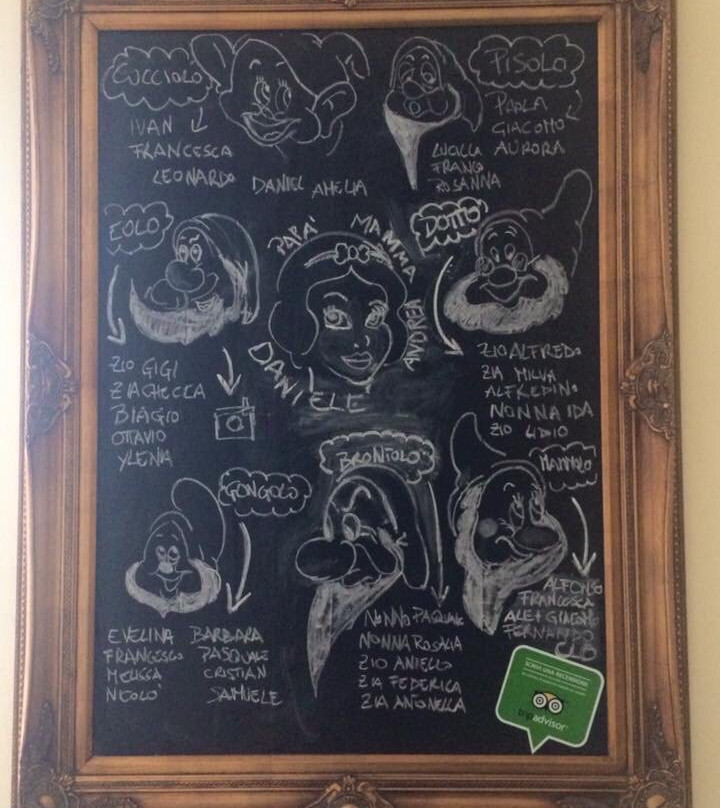 CUCCIOLO
IVAN
FRANCESCA
LEONARDO
DANIEL AMELIA
PISOLO
PAOLA
GIACOMO
AURORA
LUCILLA
FRANCO
ROSANNA
EOLO
ZIO GIGI
ZIA CHECCA
BIAGIO
OTTAVIO
YLENIA
PAPA'
MAMMA
ANDREA
DANIELE
DOTTO
ZIO ALFREDO
ZIA MILVA
ALFREDINO
NONNA IDA
ZIO LIDIO
GONGOLO
EVELINA
FRANCESCO
MELISSA
NICOLO'
BARBARA
PASQUALE
CRISTIAN
SAMUELE
BRONTOLO
NONNO PASQUALE
NONNA ROSALIA
ZIO ANIELLO
ZIA FEDERICA
ZIA ANTONELLA
MAMMOLO
ALFONSO
FRANCESCA
ALE+GIACOMO
FERNANDO
SCRIVI UNA RECENSIONE
tripadvisor